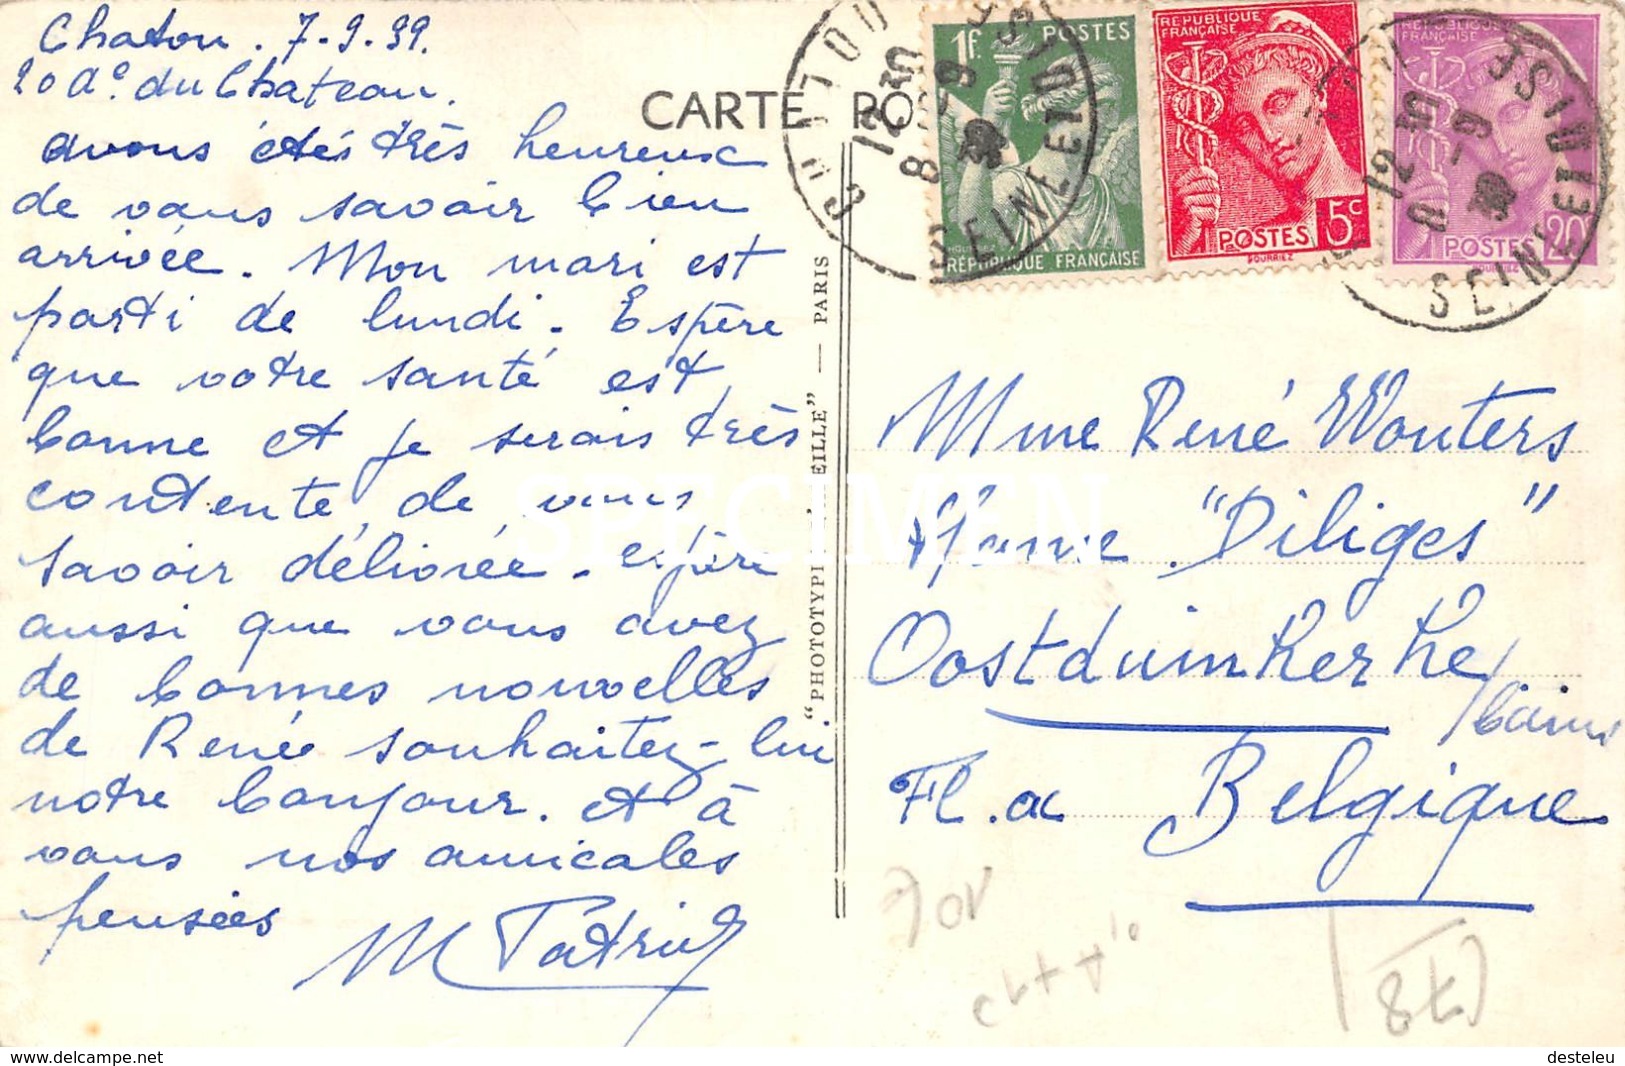 Chatou. 7-9-39.
20 Ae. du Chateau.
avons étés très heureux
de vous savoir bien
arrivée. Mon mari est
parti de lundi. Espère
que votre santé est
bonne et je serais très
contente de vous
savoir délivrée. espère
aussi que vous avez
de bonnes nouvelles
de René souhaitez-lui
notre bonjour. et à
vous nos amicales
pensées
CARTE PO
"PHOTOTYPI EILLE" — PARIS
SPECIMEN
1F. POSTES
RÉPUBLIQUE FRANÇAISE
REPUBLIQUE FRANÇAISE
5c
POSTES
REPUBLIQUE FRANÇAISE
POSTES 20c
CHATOU
12 30
8 -9
39
SEINE ET OISE
12 30
8 -9
39
SEINE ET OISE
Mme René Wouters
"Diliges"
Oostduinkerke
/bains
Fl. oc Belgique
delcampe.net
desteleu